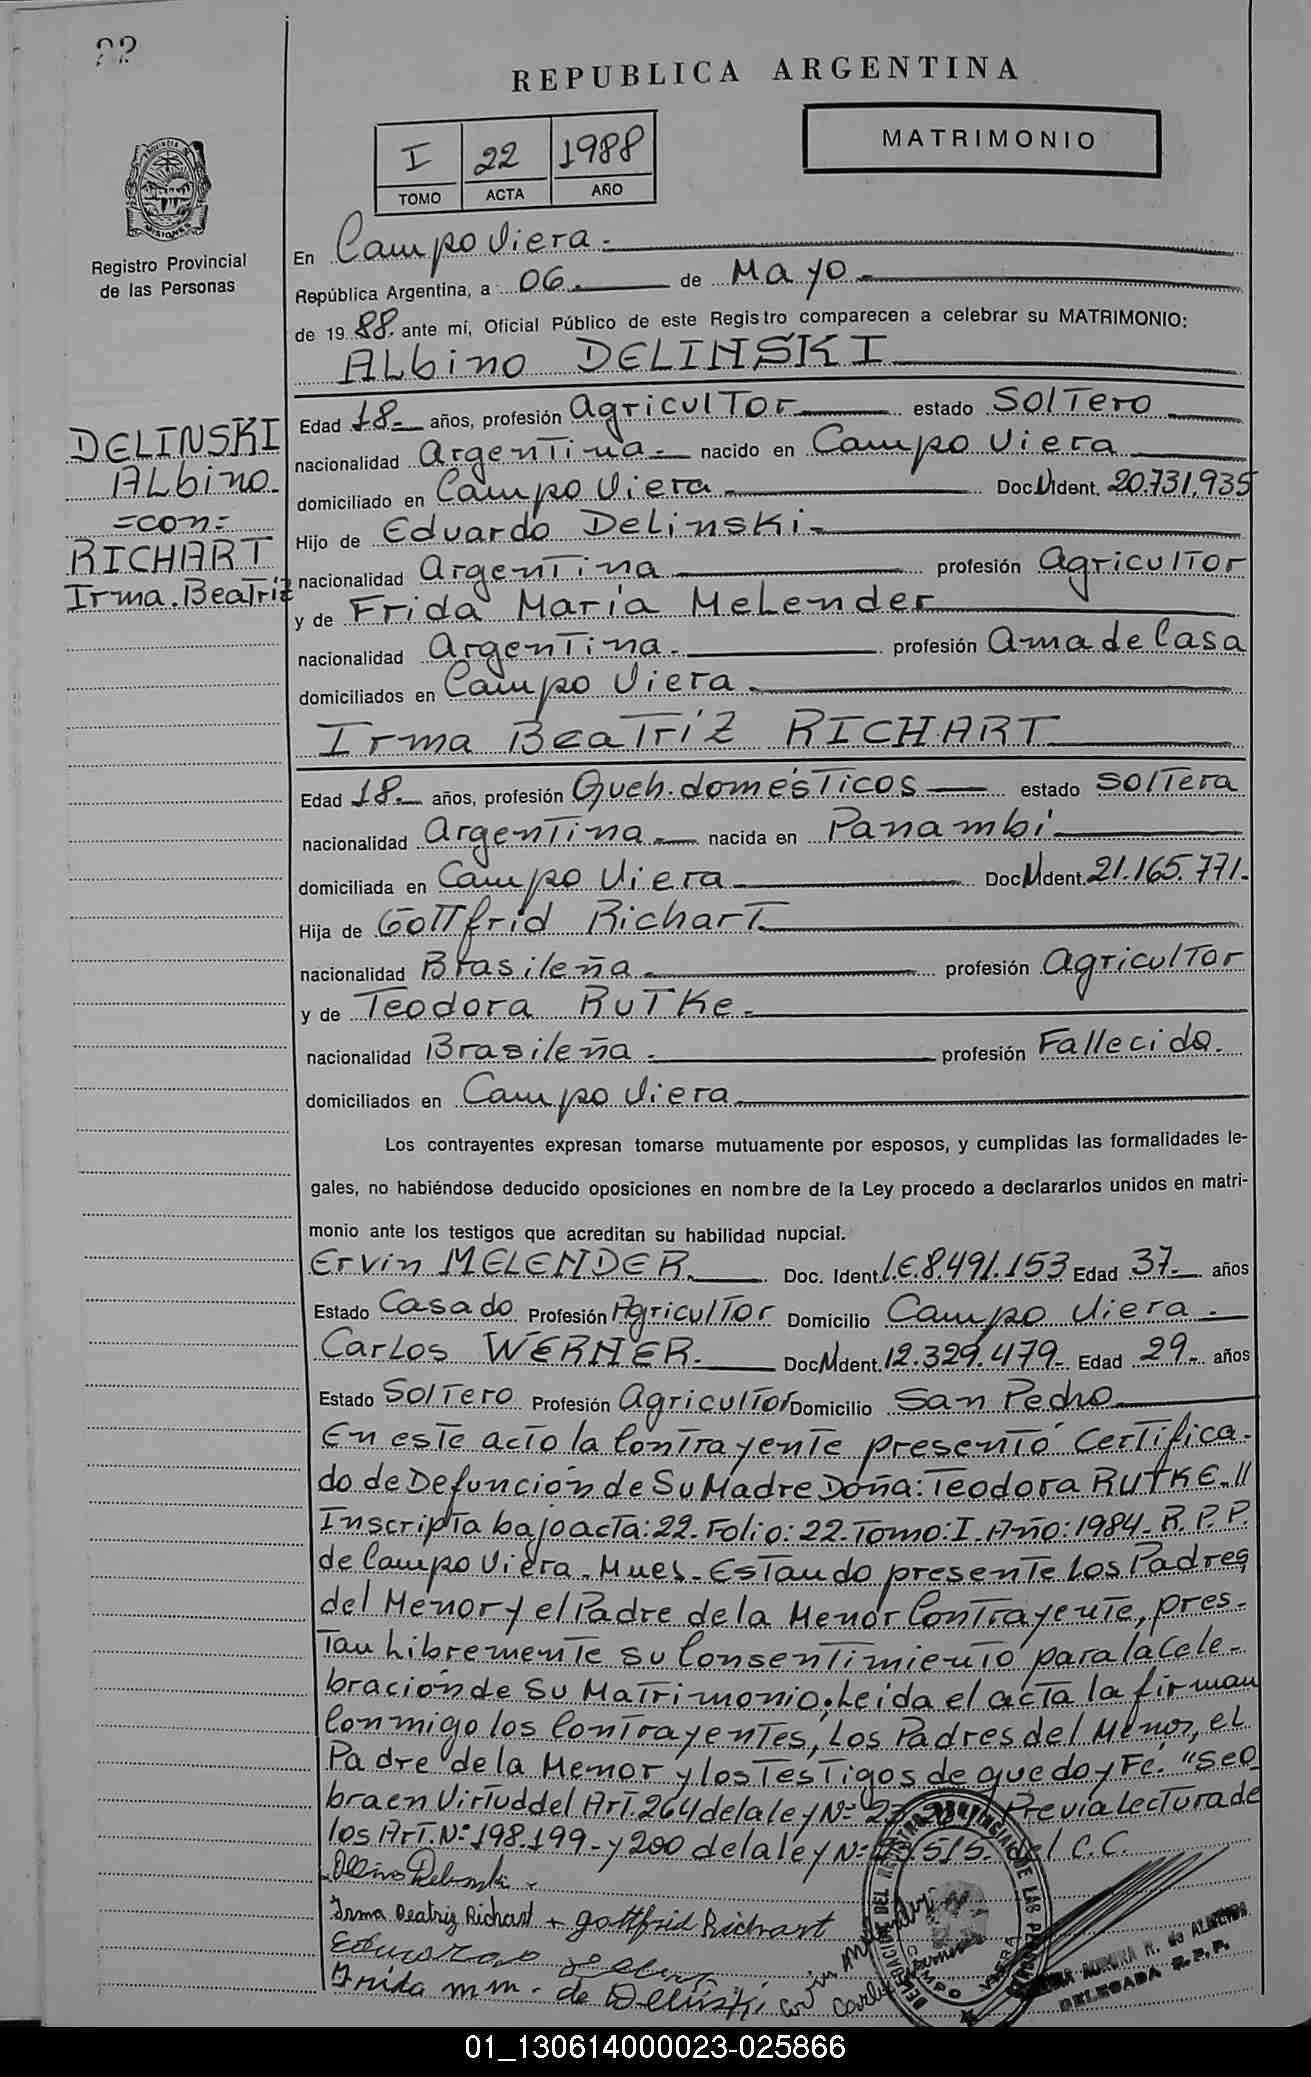 22
REPUBLICA ARGENTINA
I 22 1988
TOMO ACTA AÑO
MATRIMONIO
Registro Provincial
de las Personas
DELINSKI
ALbino
=con=
RICHART
Irma.BeaTriz
En Campo Viera.
República Argentina, a 06. de Mayo.
de 1988. ante mí, Oficial Público de este Registro comparecen a celebrar su MATRIMONIO:
ALbino DELINSKI
Edad 18. años, profesión AgriculTor estado SolTero
nacionalidad ArgenTina. nacido en Campo Viera
domiciliado en Campo Viera. Doc.N.Ident. 20.731.935
Hijo de Eduardo Delinski.
nacionalidad ArgenTina profesión AgriculTor
y de Frida María Melender
nacionalidad ArgenTina. profesión Ama de Casa
domiciliados en Campo Viera.
Irma BeaTriz RICHART
Edad 18. años, profesión Queh.domésTicos estado SolTera
nacionalidad ArgenTina. nacida en Panambí
domiciliada en Campo Viera Doc.N.Ident. 21.165.771.
Hija de GoTTfrid RicharT.
nacionalidad Brasileña. profesión AgriculTor
y de Teodora RuTKe.
nacionalidad Brasileña. profesión Fallecida.
domiciliados en Campo Viera.
Los contrayentes expresan tomarse mutuamente por esposos, y cumplidas las formalidades le-
gales, no habiéndose deducido oposiciones en nombre de la Ley procedo a declararlos unidos en matri-
monio ante los testigos que acreditan su habilidad nupcial.
Ervin MELENDER. Doc. Ident. L.E.8.491.153 Edad 37. años
Estado Casado Profesión AgriculTor Domicilio Campo Viera.
Carlos WERNER. Doc.N.Ident. 12.329.479. Edad 29. años
Estado SolTero Profesión AgriculTor Domicilio San Pedro
En esTe acTo la ConTrayenTe presenTó CerTifica-
do de Defunción de Su Madre Doña: Teodora RUTKE.//
InscripTa bajo acTa: 22. Folio: 22. Tomo: I. Año: 1984. R.P.P.
de Campo Viera. Mnes. EsTando presenTe Los Padres
del Menor y el Padre de la Menor ConTrayenTe, pres-
Tan Libremente su ConsenTimienTo para la Cele-
bración de Su MaTrimonio. Leída el acTa la firman
Conmigo los ConTrayenTes, Los Padres del Menor, el
Padre de la Menor y los TesTigos de que doy Fé. "Se o
bra en VirTud del ArT. 264 de la ley Nº Previa lecTura de
los ArT. Nº 198.199. y 200 de la ley Nº .515. del C.C.
Albino Delinski.
Irma Beatriz Richart + Gottfrid Richart
Eduardo
Frida m m. de Delinski
DELEGACION DEL REGISTRO PROVINCIAL DE LAS PERSONAS
CAMPO VIERA
AURORA R. de ALMEIDA
DELEGADA R.P.P.
01_130614000023-025866